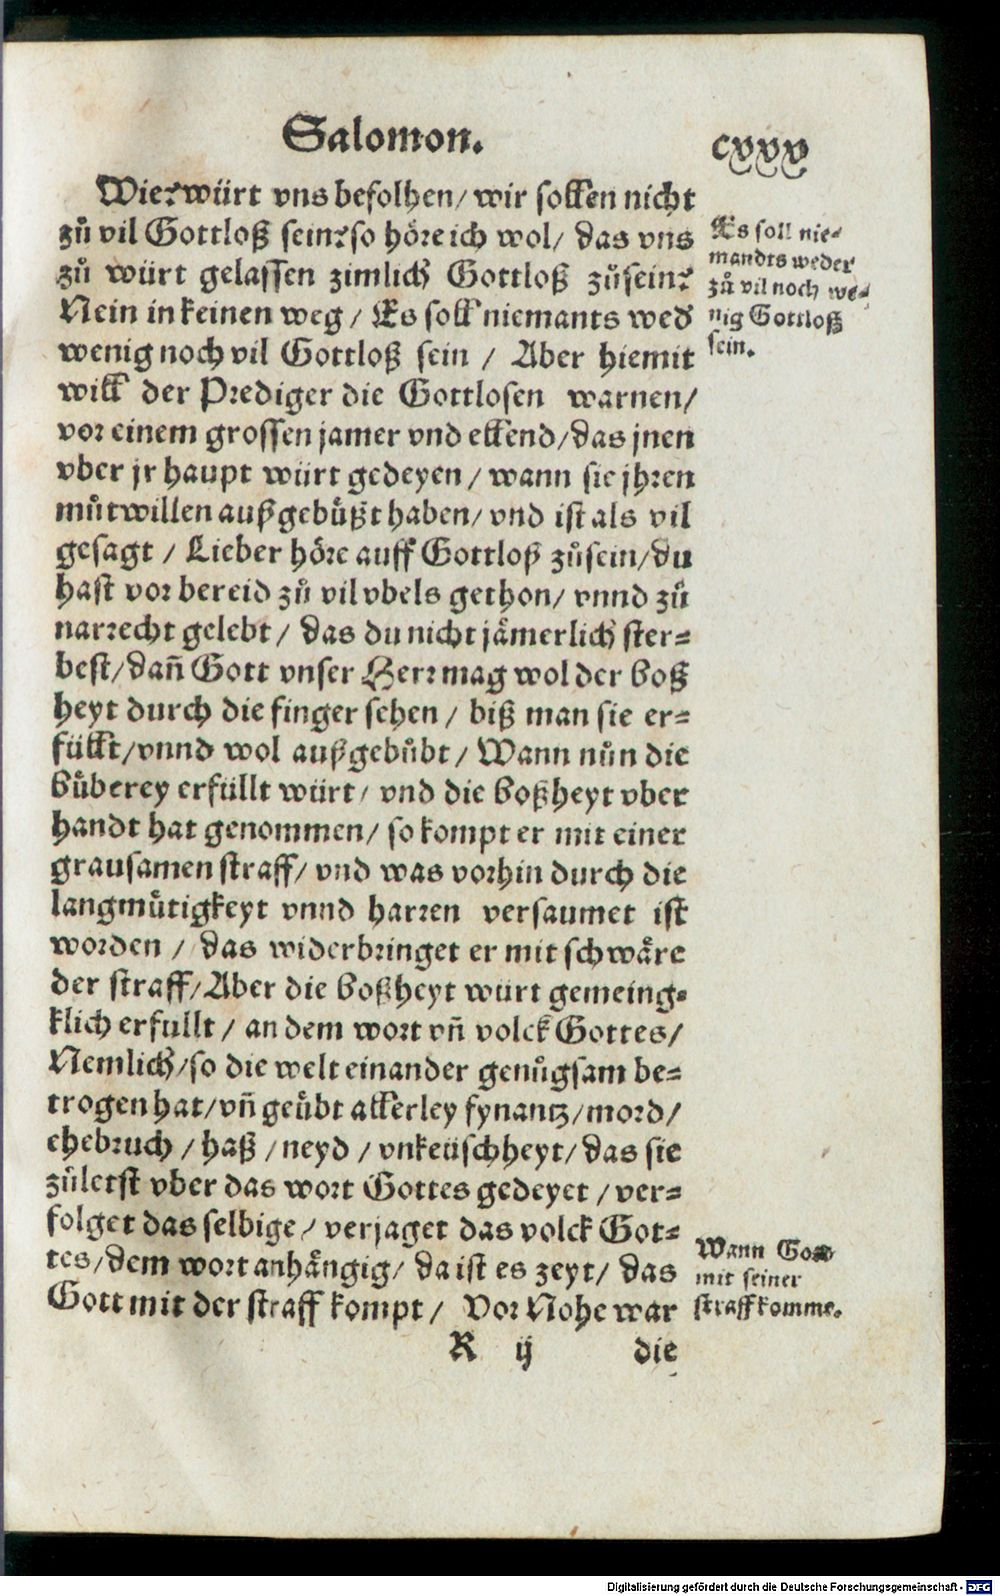 Salomon.
cxxx
Wie? würt vns befolhen/ wir sollen nicht
zů vil Gottloß sein? so höre ich wol/ das vns
zů würt gelassen zimlich Gottloß zůsein?
Nein in keinen weg/ Es soll niemants wed̕
wenig noch vil Gottloß sein / Aber hiemit
will der Prediger die Gottlosen warnen/
vor einem grossen jamer vnd ellend/ das jnen
vber jr haupt würt gedeyen / wann sie jhren
můtwillen außgebůßt haben/ vnd ist als vil
gesagt / Lieber höre auff Gottloß zůsein/ du
hast vor bereid zů vil vbels gethon/ vnnd zů
narrecht gelebt / das du nicht jämerlich ster-
best/ dañ Gott vnser Herr mag wol der boß
heyt durch die finger sehen / biß man sie er-
füllt/ vnnd wol außgebůbt / Wann nůn die
bůberey erfüllt würt/ vnd die boßheyt vber
handt hat genommen/ so kompt er mit einer
grausamen straff/ vnd was vorhin durch die
langmůtigkeyt vnnd harren versaumet ist
worden / das widerbringet er mit schwäre
der straff/ Aber die boßheyt würt gemeing-
klich erfullt / an dem wort vñ volck Gottes/
Nemlich/ so die welt einander genůgsam be-
trogen hat/ vñ geůbt allerley fynantz/ mord/
ehebruch / haß / neyd / vnkeüschheyt/ das sie
zůletst vber das wort Gottes gedeyet / ver-
folget das selbige / verjaget das volck Got-
tes/ dem wort anhängig/ da ist es zeyt/ das
Gott mit der straff kompt / Vor Nohe war
R ij die
Es soll nie-
mandts weder
zů vil noch we-
nig Gottloß
sein.
Wann Gott
mit seiner
straff komme.
Digitalisierung gefördert durch die Deutsche Forschungsgemeinschaft - DFG